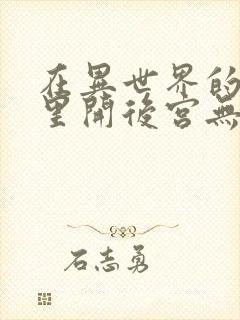 在異世界的
里開後宮無
石志勇